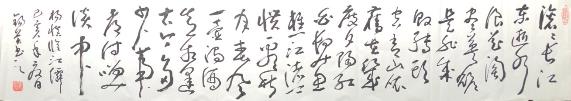 滚滚长江
东逝水
浪花淘
尽英雄
是非成
败转头
空青山依
旧在几
度夕阳红
白发渔
樵江渚上
惯看秋
月春风
一壶浊酒
喜相逢
古今多
少事
都付笑
谈中
杨慎临江仙